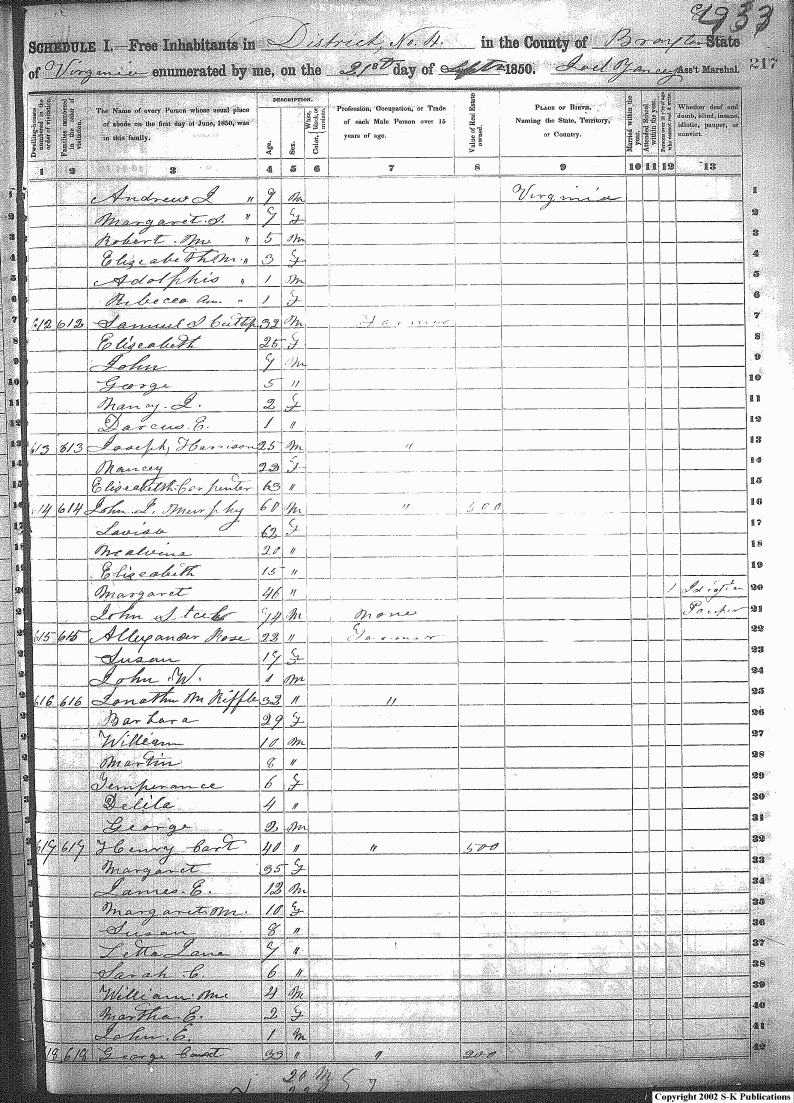 S-K Publications
933
SCHEDULE I.—Free Inhabitants in District No. 4. in the County of Braxton State
of Virginia enumerated by me, on the 21st day of 1850. Joel Yancey Ass't Marshal. 217
DESCRIPTION.
Dwelling-houses numbered in the order of visitation. Families numbered in the order of visitation. The Name of every Person whose usual place of abode on the first day of June, 1850, was in this family. Age. Sex. Color, White, black, or mulatto. Profession, Occupation, or Trade of each Male Person over 15 years of age. Value of Real Estate owned. PLACE OF BIRTH. Naming the State, Territory, or Country. Married within the year. Attended School within the year. Whether deaf and dumb, blind, insane, idiotic, pauper, or convict.
1 2 3 4 5 6 7 8 9 10 11 12 13
1 Andrew J " 9 M Virginia 1
2 Margaret S. " 7 F 2
3 Robert Mc " 5 M 3
4 Elizabeth M. " 3 F 4
5 Adolphis " 1 M 5
6 Rebecca Ann " 1 F 6
7 612 612 Samuel S Cutlip 32 M Farmer 7
8 Elizabeth 25 F 8
9 John 7 M 9
10 George 5 " 10
11 Nancy J. 2 F 11
12 Darcus E. 1 " 12
13 613 613 Joseph Harrison 25 M " 13
14 Nancey 23 F 14
15 Elizabeth Carpenter 63 " 15
16 614 614 John J. Murphy 60 M " 500 16
17 Lovisa 62 F 17
18 Malvina 20 " 18
19 Elizabeth 15 " 19
Margaret 46 " 1 20
John 74 M None Pauper 21
22 615 615 Allexander Rose 23 " Farmer 22
23 Susan 17 F 23
24 John W. 1 M 24
25 616 616 Jonathn M Riffle 32 " " 25
26 Barbara 29 F 26
27 William 10 M 27
28 Martin 8 " 28
29 Temperance 6 F 29
30 Delila 4 " 30
31 George 2 M 31
32 617 617 Henry Cart 40 " " 500 32
33 Margaret 35 F 33
34 James E. 12 M 34
35 Margaret M. 10 F 35
36 Susan 8 " 36
37 Letta Jane 7 " 37
38 Sarah C 6 " 38
39 William Mc 4 M 39
40 Martha E. 2 F 40
41 John E. 1 M 41
618 George 33 " " 200 42
20 M
Copyright 2002 S-K Publications